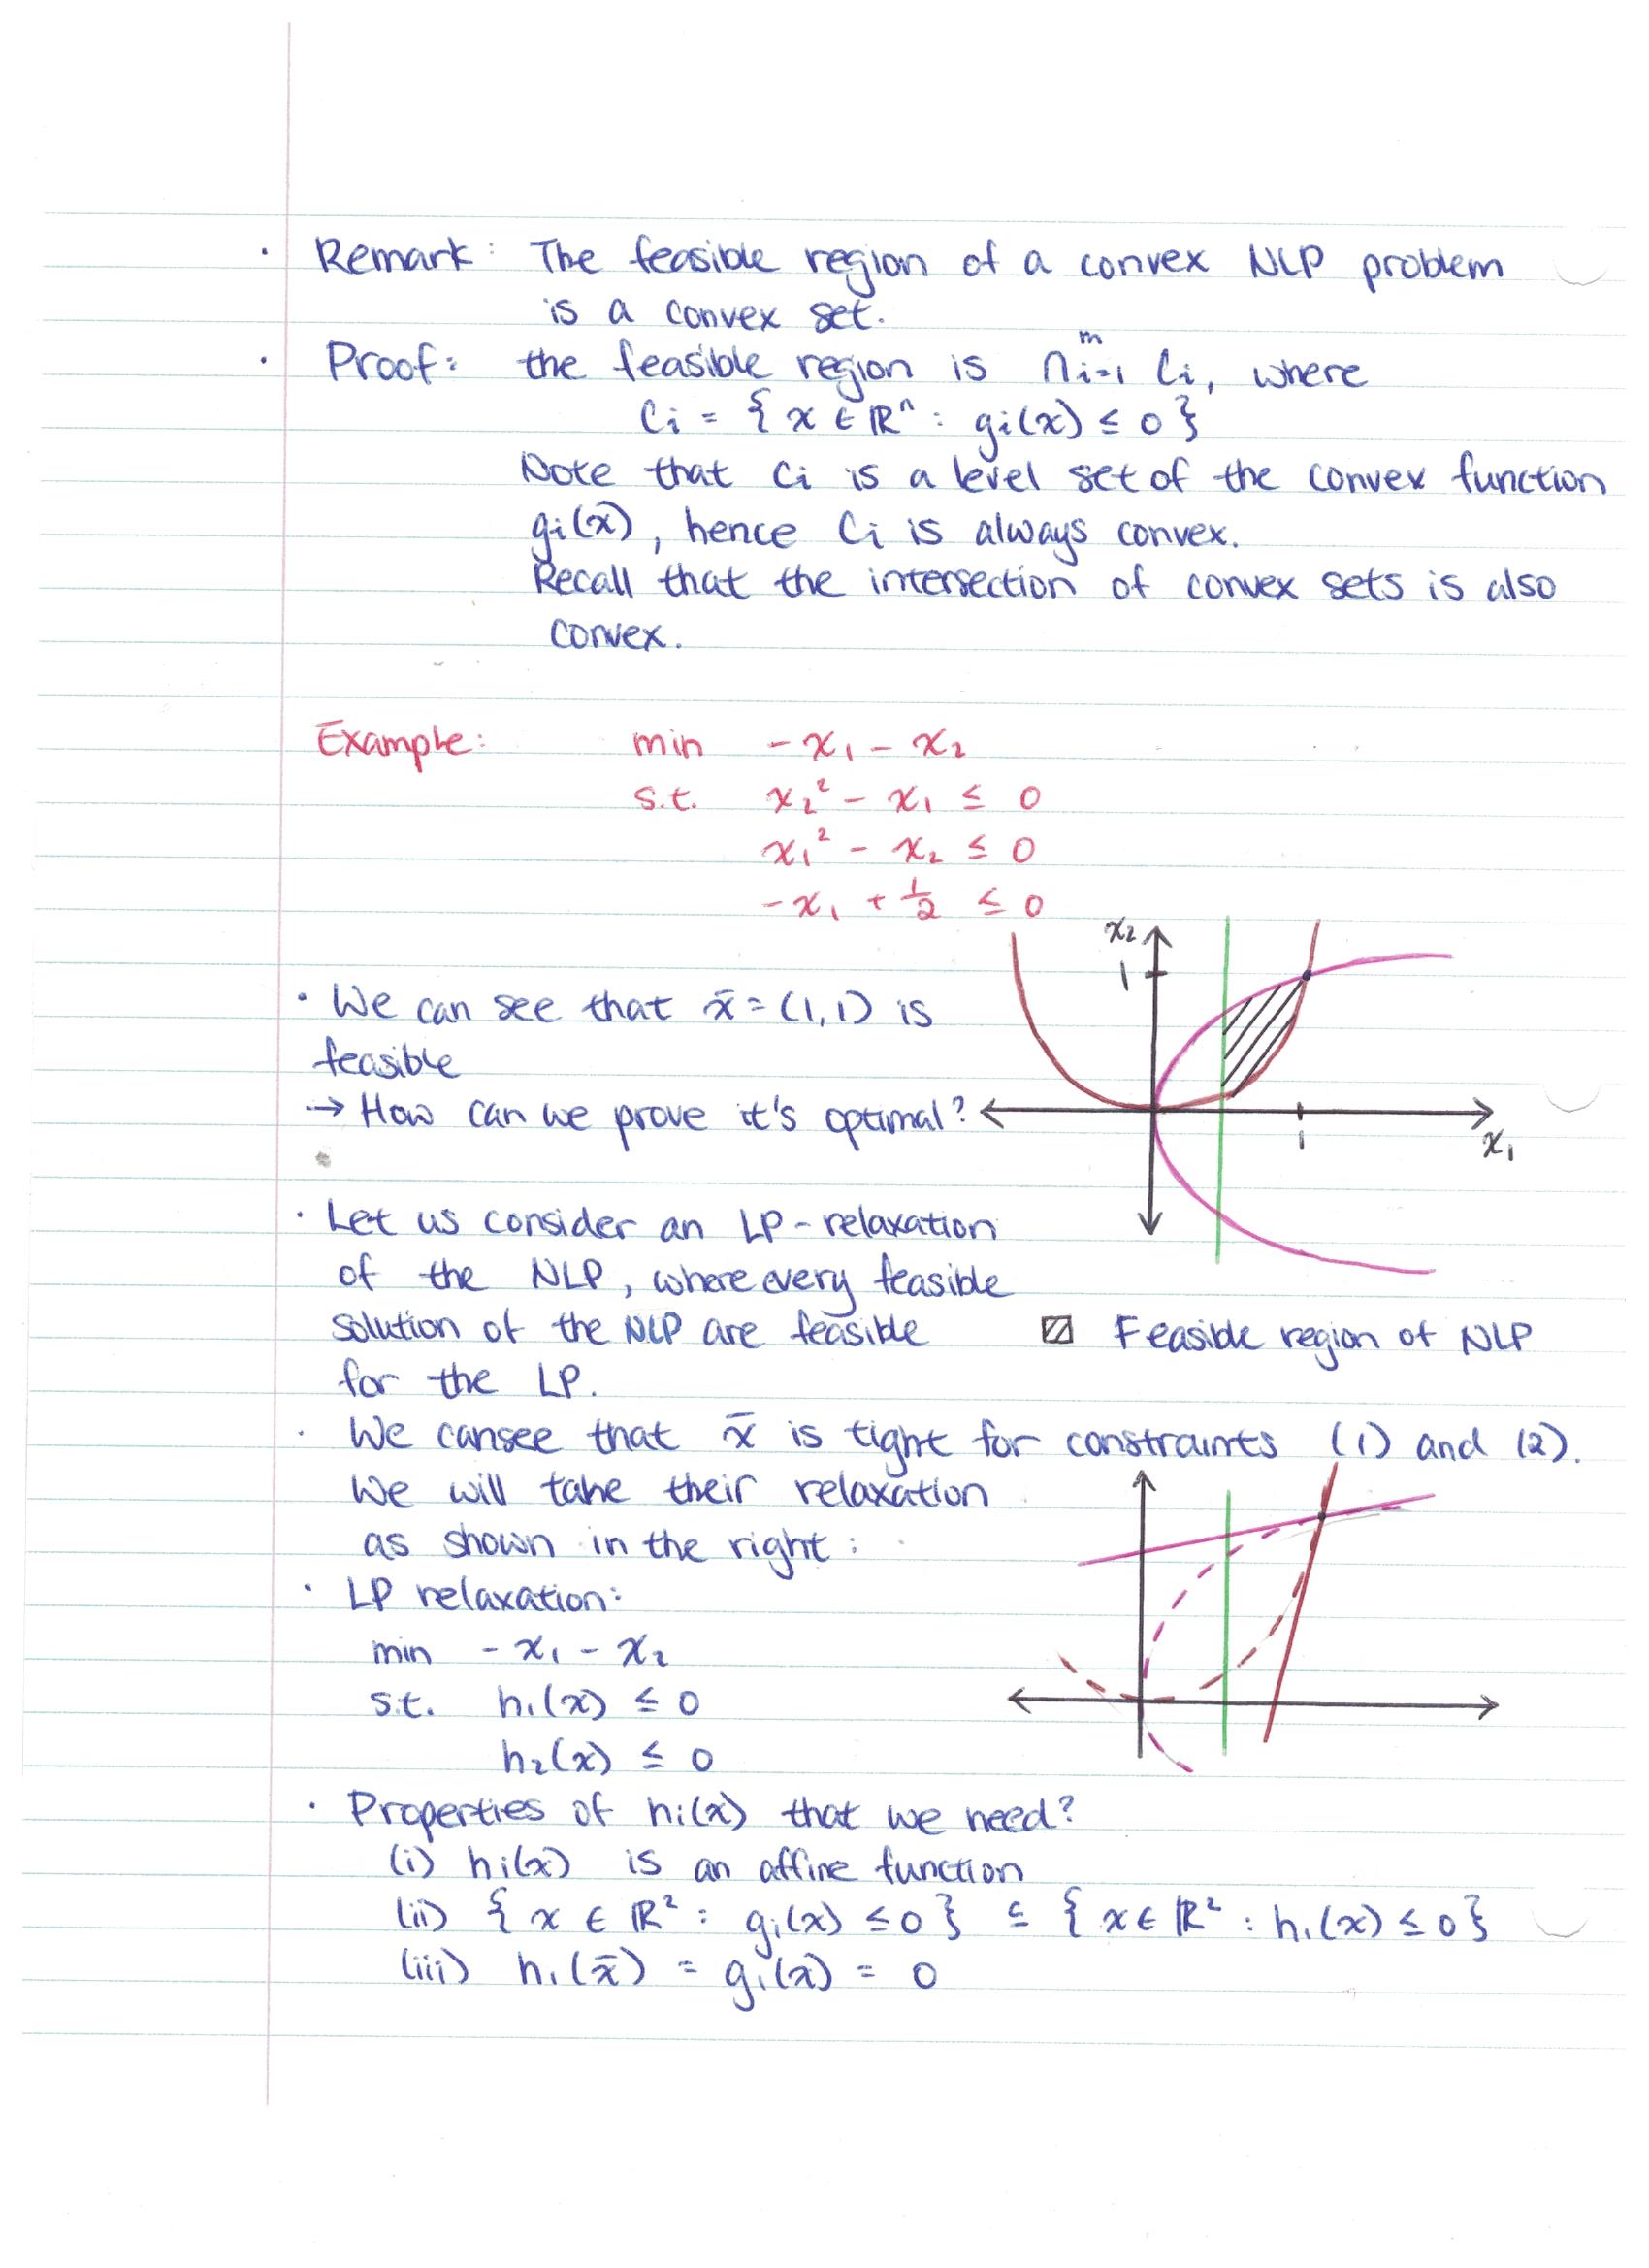 · Remark: The feasible region of a convex NLP problem
is a convex set.
· Proof: the feasible region is ∩ᵢ₌₁ᵐ Cᵢ, where
Cᵢ = { x ∈ ℝⁿ : gᵢ(x) ≤ 0 }
Note that Cᵢ is a level set of the convex function
gᵢ(x), hence Cᵢ is always convex.
Recall that the intersection of convex sets is also
convex.
Example: min -x₁ - x₂
s.t. x₂² - x₁ ≤ 0
x₁² - x₂ ≤ 0
-x₁ + 1/2 ≤ 0
x₂
1
1
x₁
· We can see that x̄ = (1,1) is
feasible
→ How can we prove it's optimal?
· Let us consider an LP-relaxation
of the NLP, where every feasible
solution of the NLP are feasible
for the LP.
▨ Feasible region of NLP
· We can see that x̄ is tight for constraints (1) and (2).
We will take their relaxation
as shown in the right:
· LP relaxation:
min -x₁ - x₂
s.t. h₁(x) ≤ 0
h₂(x) ≤ 0
· Properties of hᵢ(x) that we need?
(i) hᵢ(x) is an affine function
(ii) { x ∈ ℝ² : gᵢ(x) ≤ 0 } ⊆ { x ∈ ℝ² : hᵢ(x) ≤ 0 }
(iii) hᵢ(x̄) = gᵢ(x̄) = 0